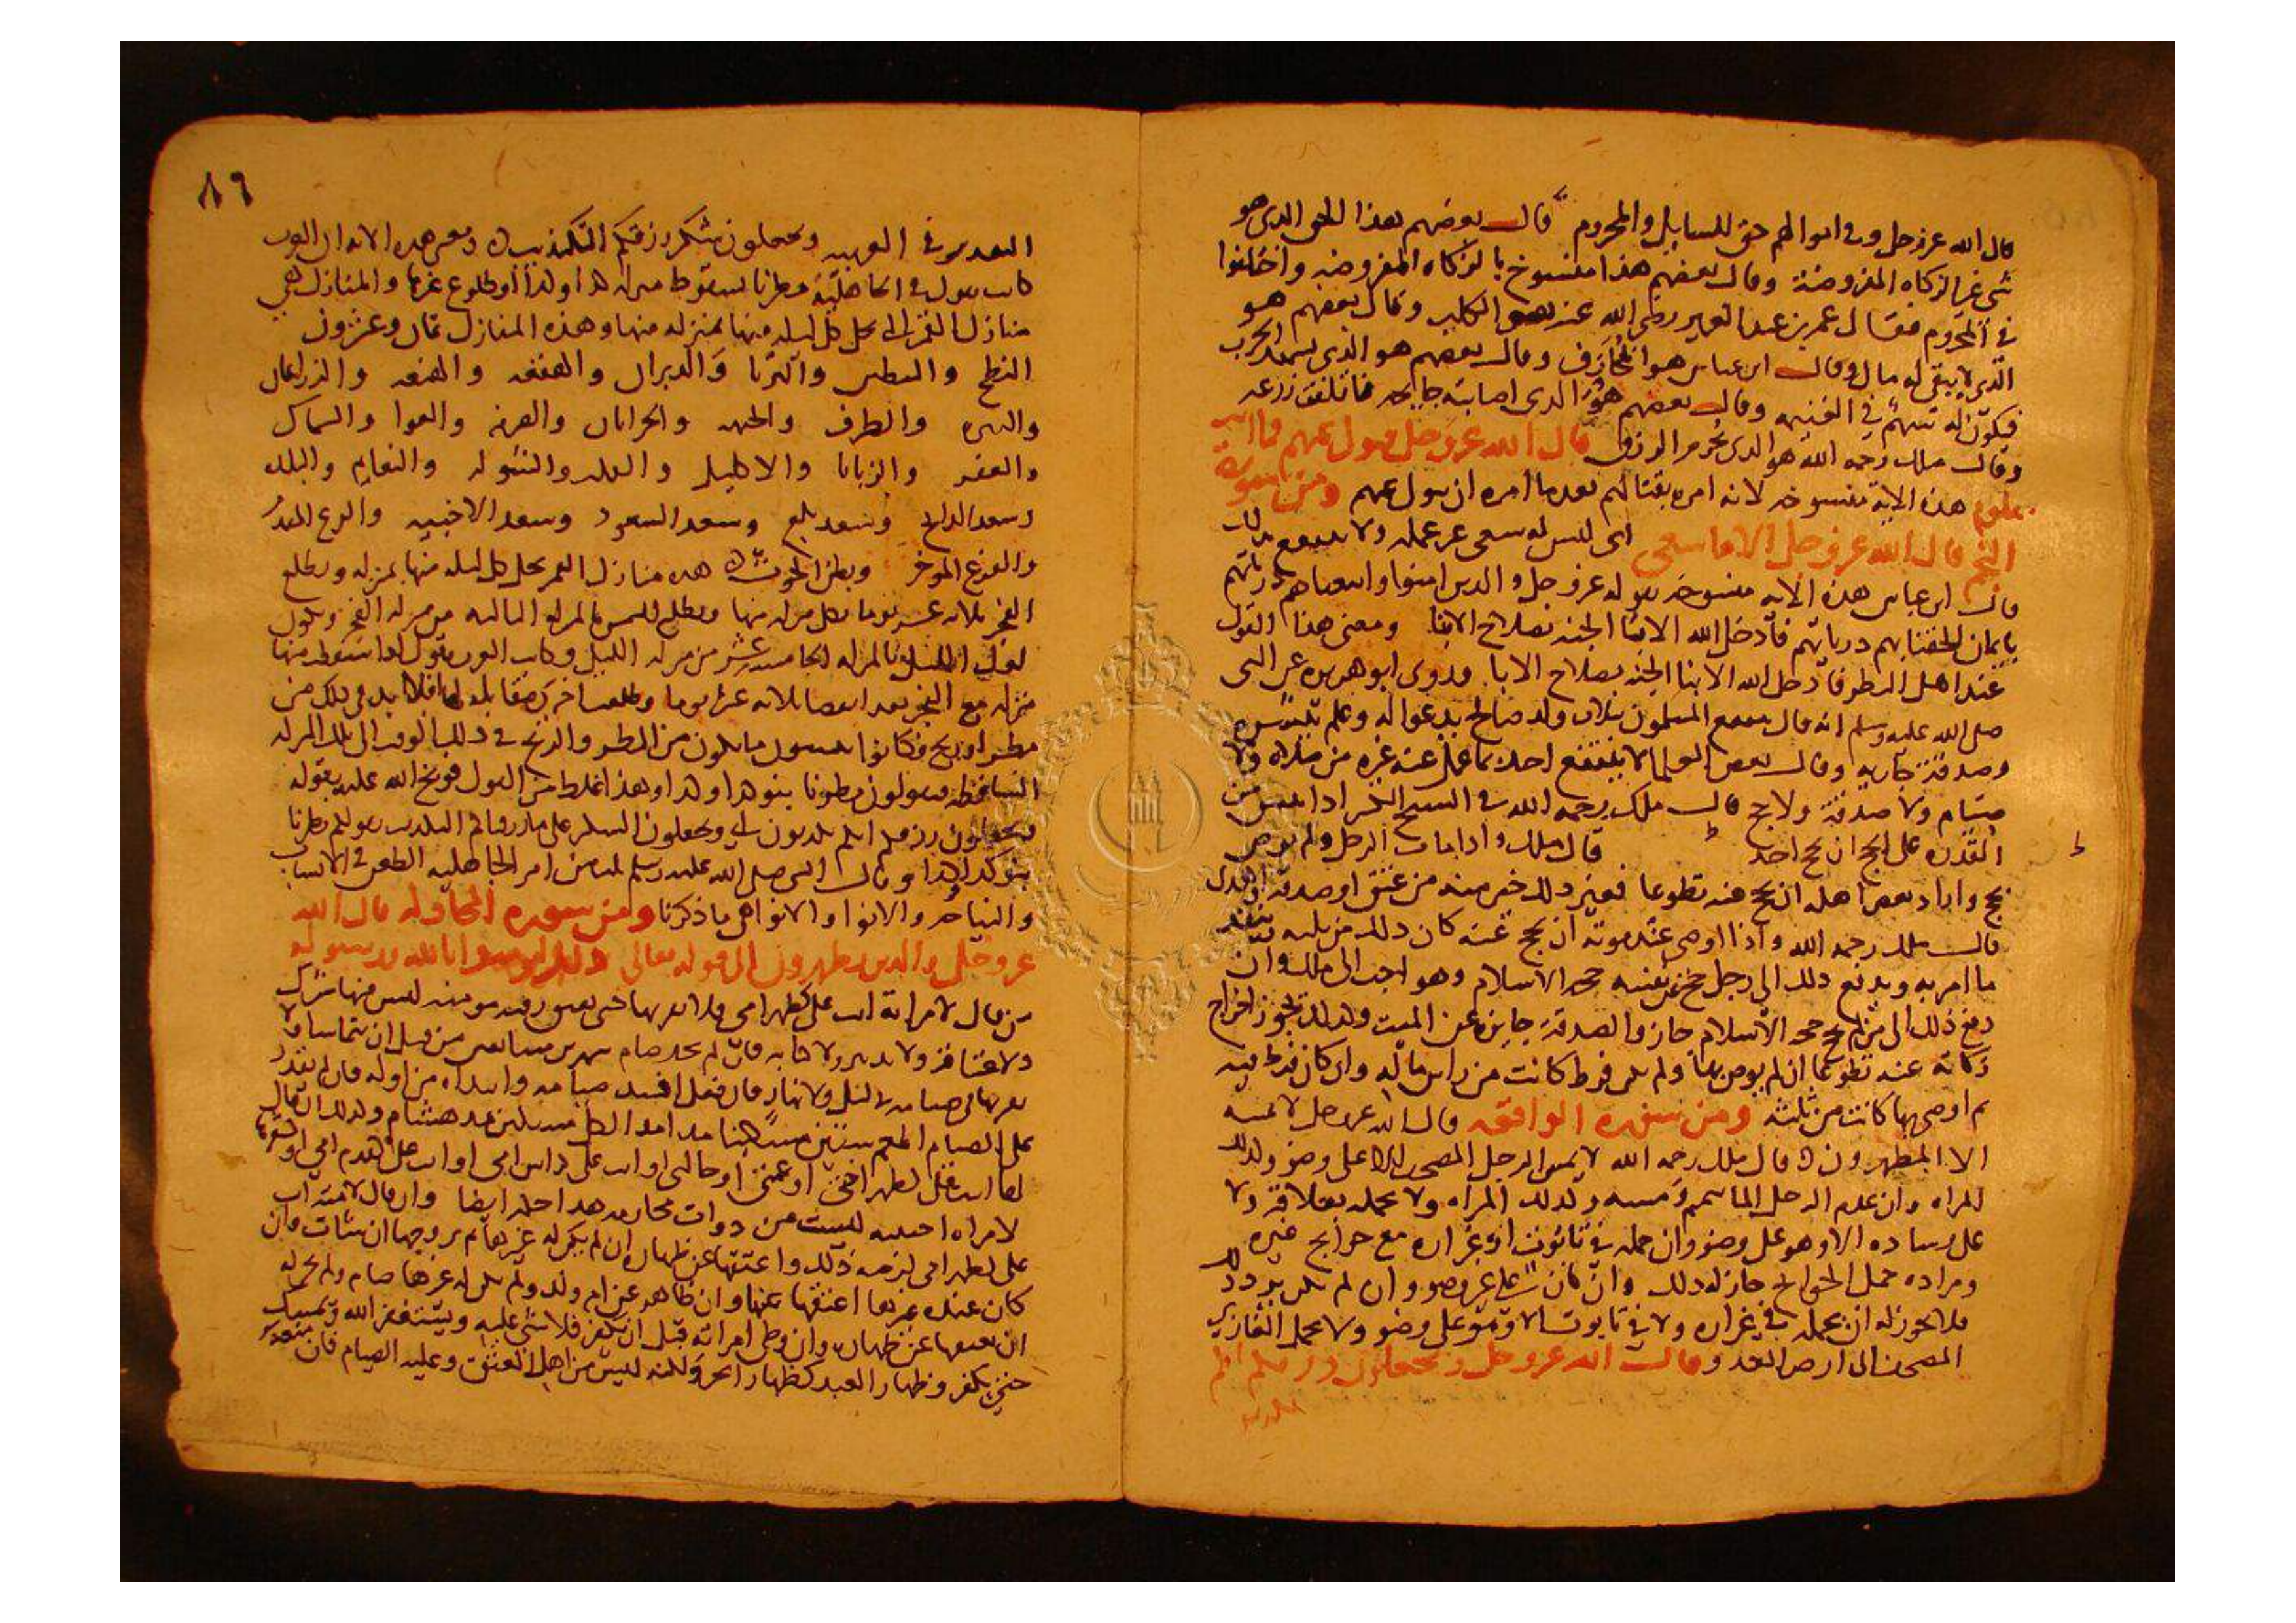 قال الله عز وجل وفي اموالهم حق للسايل والمحروم قال بعضهم هذا الحق الذي هو
شي غير الزكاه المفروضة وقال بعضهم هذا منسوخ بالزكاه المفروضه واختلفوا
في المحروم فقال عمر بن عبد العزيز رضي الله عنه هو الكلب وقال بعضهم هو
الذي لا يبقى له مال وقال ابن عباس هو المحارف وقال بعضهم هو الذي يشهد الحرب
فيكون له سهم في الغنيمه وقال بعضهم هو الذي اصابته جايحه فاتلفت زرعه
وقال ملك رحمه الله هو الذي يحرم الرزق قال الله عز وجل فتول عنهم فما انت
بملوم هذه الاية منسوخه لانه امره بقتالهم بعدما امره ان يتول عنهم ومن سورة
النجم قال الله عز وجل الا ما سعى اي ليس له سعي غير عمله ولا ينتفع بذلك
قال ابن عباس هذه الايه منسوخه بقوله عز وجل والذين امنوا واتبعناهم ذرياتهم
بايمان الحقنا بهم ذرياتهم فادخل الله الابنا الجنه بصلاح الابا ومعنى هذا القول
عند اهل النظر فادخل الله الابنا الجنه بصلاح الابا وروى ابو هريره عن النبي
صلى الله عليه وسلم انه قال ينتفع المسلمون بثلاث ولد صالح يدعوا له وعلم
وصدقة جاريه وقال بعض العلما لا ينتفع احد بما عمل عنه غيره من صلاه ولا
صيام ولا صدقة ولا حج قال ملك رحمه الله في الشيخ الكبير اذا
القدره على الحج ان يحج احد قال ملك واذا مات الرجل ولم يوص
بحج واراد بعض اهله ان يحج عنه تطوعا فغير ذلك خير منه من عتق او صدقه او هدي
قال ملك رحمه الله واذا اوصى عند موته ان يحج عنه كان ذلك من ثلثه ينفذ
ما امر به ويدفع ذلك الى رجل حج عن نفسه حجه الاسلام وهو احب الى ملك وان
دفع ذلك الى من لم يحج حجه الاسلام جاز والصدقة جايزه عن الميت وكذلك يجوز اخراج
زكاته عنه تطوعا ان لم يوص بها ولم يكن فرط كانت من راس ماله وان كان فرط فيه
ثم اوصى بها كانت من ثلثه ومن سوره الواقعه قال الله عز وجل لا يمسه
الا المطهرون قال ملك رحمه الله لا يمس الرجل المصحف الا على وضو وكذلك
المراه وان عدم الرجل الما تيمم ومسه وكذلك المراه ولا يحمله بعلاقه ولا
على وساده الا وهو على وضو وان حمله في تابوت او غراره مع حوايج غيره
ومراده حمل الحوايج جاز له ذلك وان كان على غير وضو وان لم يكن يرد ذلك
فلا يجوز له ان يحمله في غراره ولا في تابوت الا وهو على وضو ولا يحمل الغازي
المصحف الى ارض العدو وقال الله عز وجل وتجعلون رزقكم انكم
تكذبون
٨٦
التقدير في العربيه وتجعلون شكر رزقكم التكذيب ومعنى هذه الايه ان العرب
كانت تقول في الجاهلية مطرنا بسقوط منزله كذا وكذا او طلوع غيرها والمنازل هي
منازل القمر التي يحل كل ليله منها بمنزله منها وهذه المنازل ثمان وعشرون
النطح والبطين والثريا والدبران والهقعه والهنعه والذراعان
والنثره والطرف والجبهه والخراتان والصرفه والعوا والسماك
والغفر والزبانا والاكليل والقلب والشوله والنعايم والبلده
وسعد الذابح وسعد بلع وسعد السعود وسعد الاخبيه والفرغ المقدم
والفرغ الموخر وبطن الحوت هذه منازل القمر يحل كل ليله منها بمنزله ويطلع
الفجر ثلاثه عشر يوما بكل منزله منها
منزله مع الفجر بعد انقضا ثلاثه عشر يوما
مطر او ريح فكانوا من المطر والريح في ذلك الوقت الى تلك المنزله
الساقطه فيقولون مطرنا بنو كذا وكذا وهذا غلط من القول فوبخ الله عليه بقوله
وتجعلون رزقكم انكم تكذبون اي وتجعلون الشكر على ما رزقناكم التكذيب بقولكم مطرنا
بنو كذا وكذا وقال النبي صلى الله عليه وسلم ثلاث من امر الجاهليه الطعن في الانساب
والنياحه والانوا والانوا هي ما ذكرنا ومن سوره المجادله قال الله
عز وجل والذين يظهرون الى قوله تعالى ذلك لتومنوا بالله ورسوله
من قال لامراته انت علي كظهر امي فلا يقربها حتى يعتق رقبه مومنه ليس فيها شرك
ولا عتاقه ولا تدبير ولا كتابه فان لم يجد صام شهرين متتابعين من قبل ان يتماسا ولا
يقربها في صيامه في ليل ولا نهار فان فعل افسد صيامه وابتداه من اوله فان لم يقدر
على الصيام اطعم ستين مسكينا مدا مدا لكل مسكين بمد هشام وكذلك ان قال
لها انت مثل ظهر اختي او عمتي او خالتي او انت علي كراس امي او انت مثل قدم امي او شعرها
لامراه اجنبيه ليست من ذوات محارمه هذا حكمه ايضا وان قال لامته انت
علي كظهر امي لزمه ذلك واعتقها عن ظهاره ان لم يكن له غيرها ثم يزوجها ان شات وان
كان عنده غيرها اعتقها عنها وان ظاهر عن ام ولد ولم يكن له غيرها صام ولم يجز له
ان يعتقها عن ظهاره وان وطي امراته قبل ان يكفر فلا شي عليه ويستغفر الله ويمسك
حتى يكفر وظهار العبد كظهار الحر ولكنه ليس من اهل العتق وعليه الصيام فان منعه